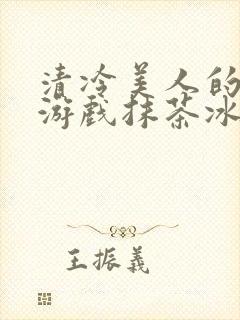 清冷美人的
游戏抹茶冰
王振義